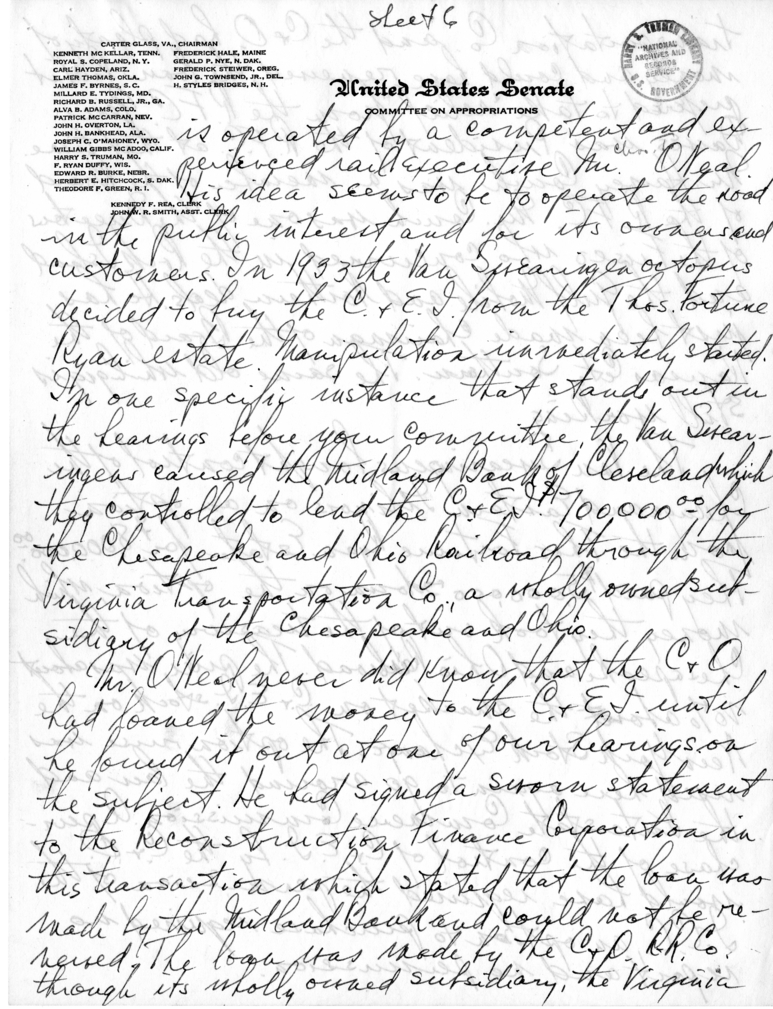 Sheet 6
CARTER GLASS, VA., CHAIRMAN
KENNETH MC KELLAR, TENN. FREDERICK HALE, MAINE
ROYAL S. COPELAND, N. Y. GERALD P. NYE, N. DAK.
CARL HAYDEN, ARIZ. FREDERICK STEIWER, OREG.
ELMER THOMAS, OKLA. JOHN G. TOWNSEND, JR., DEL.
JAMES F. BYRNES, S. C. H. STYLES BRIDGES, N. H.
MILLARD E. TYDINGS, MD.
RICHARD B. RUSSELL, JR., GA.
ALVA B. ADAMS, COLO.
PATRICK MC CARRAN, NEV.
JOHN H. OVERTON, LA.
JOHN H. BANKHEAD, ALA.
JOSEPH C. O'MAHONEY, WYO.
WILLIAM GIBBS MC ADOO, CALIF.
HARRY S. TRUMAN, MO.
F. RYAN DUFFY, WIS.
EDWARD R. BURKE, NEBR.
HERBERT E. HITCHCOCK, S. DAK.
THEODORE F. GREEN, R. I.
KENNEDY F. REA, CLERK
JOHN W. R. SMITH, ASST. CLERK
HARRY S. TRUMAN LIBRARY
"NATIONAL
ARCHIVES AND
RECORDS
SERVICE"
U.S. GOVERNMENT
United States Senate
COMMITTEE ON APPROPRIATIONS
is operated by a competent and ex-
perienced rail executive Mr. O'Neal.
His idea seems to be to operate the road
in the public interest and for its owners and
customers. In 1933 the Van Swearingen octopus
decided to buy the C. & E. I. from the Thos. Fortune
Ryan estate. Manipulation immediately started.
In one specific instance that stands out in
the hearings before your committee, the Van Swear-
ingens caused the Midland Bank of Cleveland which
they controlled to lend the C & E I. $700000 00 for
the Chesapeake and Ohio Railroad through the
Virginia Transportation Co., a wholly owned sub-
sidiary of the Chesapeake and Ohio.
Mr. O'Neal never did know that the C & O
had loaned the money to the C. & E I. until
he found it out at one of our hearings on
the subject. He had signed a sworn statement
to the Reconstruction Finance Corporation in
this transaction which stated that the loan was
made by the Midland Bank and could not be re-
newed. The loan was made by the C & O. R.R. Co.
through its wholly owned subsidiary, the Virginia